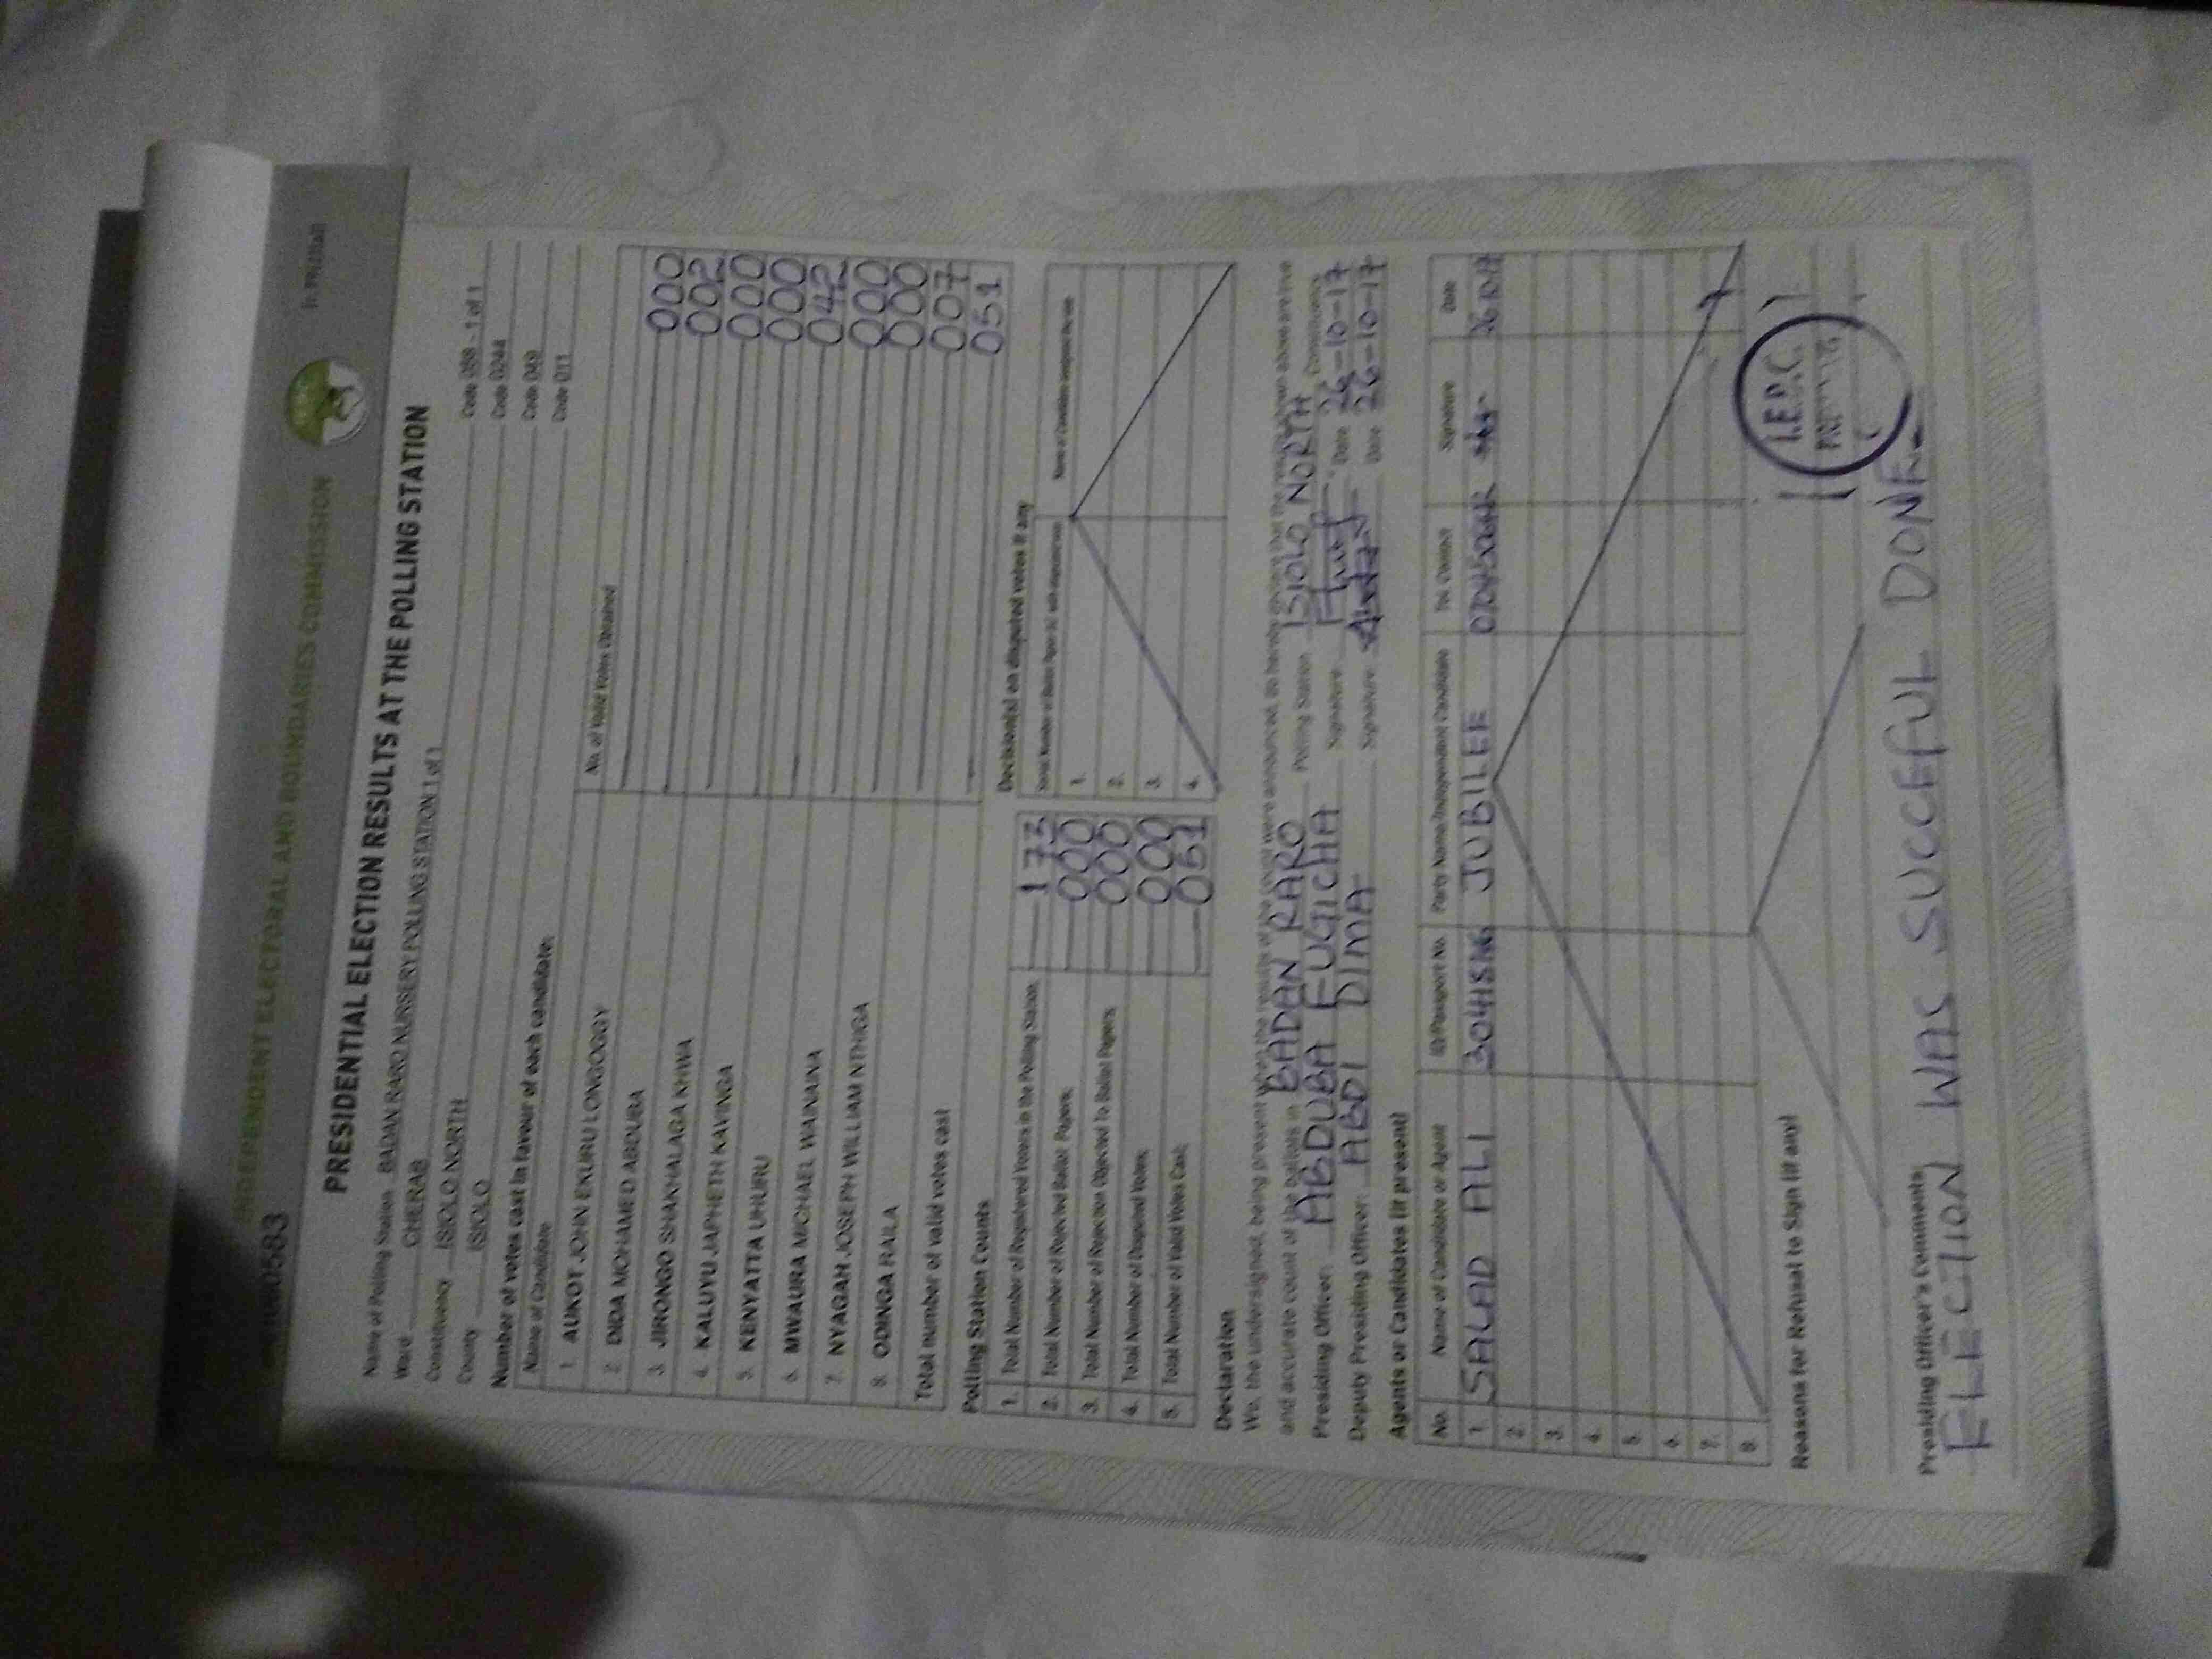 INDEPENDENT ELECTORAL AND BOUNDARIES COMMISSION
PRESIDENTIAL ELECTION RESULTS AT THE POLLING STATION
Name of Polling Station BADAN RARO NURSERY POLLING STATION 1 of 1 Code 098 - 1 of 1
Ward CHERAB Code 0244
Constituency ISIOLO NORTH Code 049
County ISIOLO Code 011
Number of votes cast in favour of each candidate:
Name of Candidate No. of Valid Votes Obtained
1. AUKOT JOHN EKURU LONGOGGY 000
2. DIDA MOHAMED ABDUBA 002
3. JIRONGO SHAKHALAGA KHWA 000
4. KALUYU JAPHETH KAVINGA 000
5. KENYATTA UHURU 042
6. MWAURA MICHAEL WAINAINA 000
7. NYAGAH JOSEPH WILLIAM NTHIGA 000
8. ODINGA RAILA 007
Total number of valid votes cast 051
Polling Station Counts
1. Total Number of Registered Voters in the Polling Station: 173
2. Total Number of Rejected Ballot Papers: 000
3. Total Number of Rejection Objected To Ballot Papers: 000
4. Total Number of Disputed Votes: 000
5. Total Number of Valid Votes Cast: 051
Decision(s) on disputed votes if any
1.
2.
3.
4.
Declaration
We, the undersigned, being present when the results of the count were announced, do hereby declare that the results shown above are true
and accurate count of the ballots in BADAN RARO Polling Station ISIOLO NORTH Constituency
Presiding Officer: ABDUBA FUGICHA Signature Date 26-10-17
Deputy Presiding Officer: ABDI DIMA Signature Date 26-10-17
Agents or Candidates (if present)
No. Name of Candidate or Agent ID/Passport No. Party Name/Independent Candidate Tel. Contact Signature Date
1. SALAD ALI JUBILEE
2.
3.
4.
5.
6.
7.
8.
Reasons for Refusal to Sign (if any)
Presiding Officer's Comments:
ELECTION WAS SUCCEFUL DONE